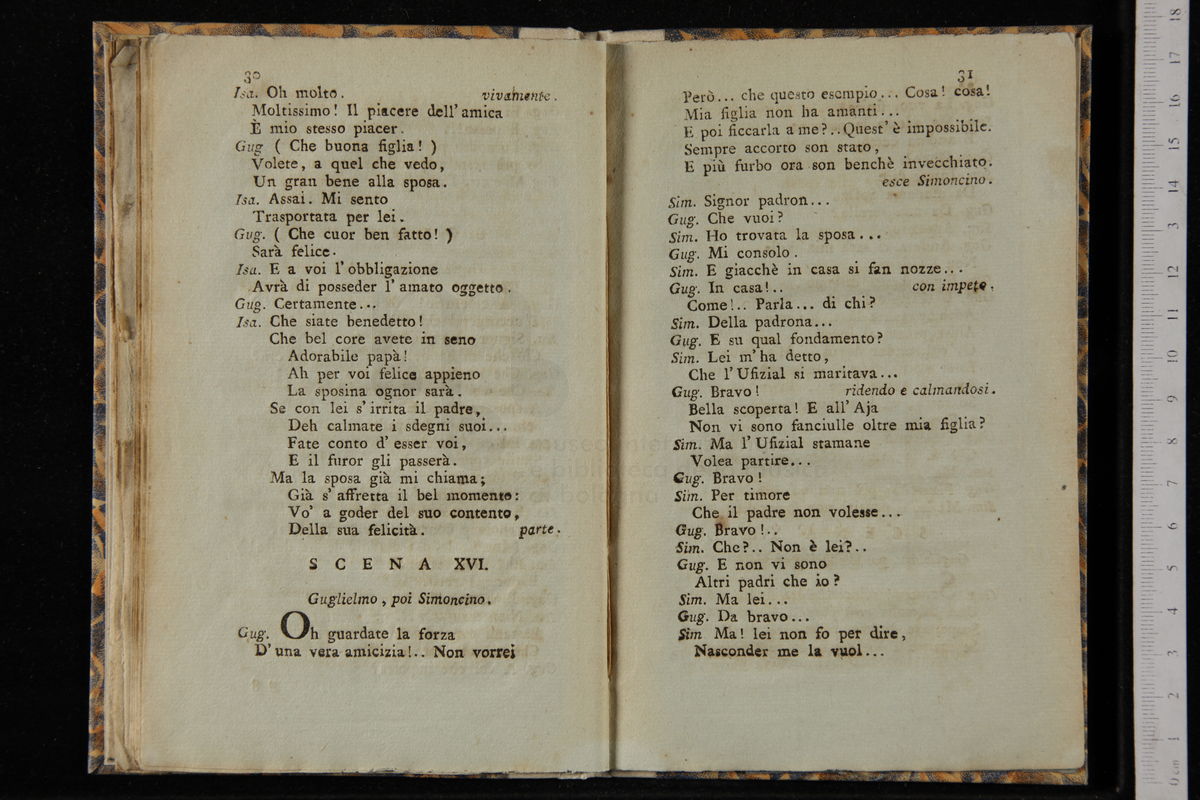 30
Isa. Oh molto. vivamente.
Moltissimo! Il piacere dell'amica
È mio stesso piacer.
Gug ( Che buona figlia! )
Volete, a quel che vedo,
Un gran bene alla sposa.
Isa. Assai. Mi sento
Trasportata per lei.
Gug. ( Che cuor ben fatto! )
Sarà felice.
Isa. E a voi l'obbligazione
Avrà di posseder l'amato oggetto.
Gug. Certamente...
Isa. Che siate benedetto!
Che bel core avete in seno
Adorabile papà!
Ah per voi felice appieno
La sposina ognor sarà.
Se con lei s'irrita il padre,
Deh calmate i sdegni suoi...
Fate conto d'esser voi,
E il furor gli passerà.
Ma la sposa già mi chiama;
Già s'affretta il bel momento:
Vo' a goder del suo contento,
Della sua felicità. parte.
SCENA XVI.
Guglielmo, poi Simoncino.
Gug. Oh guardate la forza
D'una vera amicizia!.. Non vorrei
31
Però... che questo esempio... Cosa! cosa!
Mia figlia non ha amanti...
E poi ficcarla a me?.. Quest'è impossibile.
Sempre accorto son stato,
E più furbo ora son benchè invecchiato.
esce Simoncino.
Sim. Signor padron...
Gug. Che vuoi?
Sim. Ho trovata la sposa...
Gug. Mi consolo.
Sim. E giacchè in casa si fan nozze...
Gug. In casa!.. con impeto.
Come!.. Parla... di chi?
Sim. Della padrona...
Gug. E su qual fondamento?
Sim. Lei m'ha detto,
Che l'Ufizial si maritava...
Gug. Bravo! ridendo e calmandosi.
Bella scoperta! E all'Aja
Non vi sono fanciulle oltre mia figlia?
Sim. Ma l'Ufizial stamane
Volea partire...
Gug. Bravo!
Sim. Per timore
Che il padre non volesse...
Gug. Bravo!..
Sim. Che?.. Non è lei?..
Gug. E non vi sono
Altri padri che io?
Sim. Ma lei...
Gug. Da bravo...
Sim Ma! lei non fo per dire,
Nasconder me la vuol...